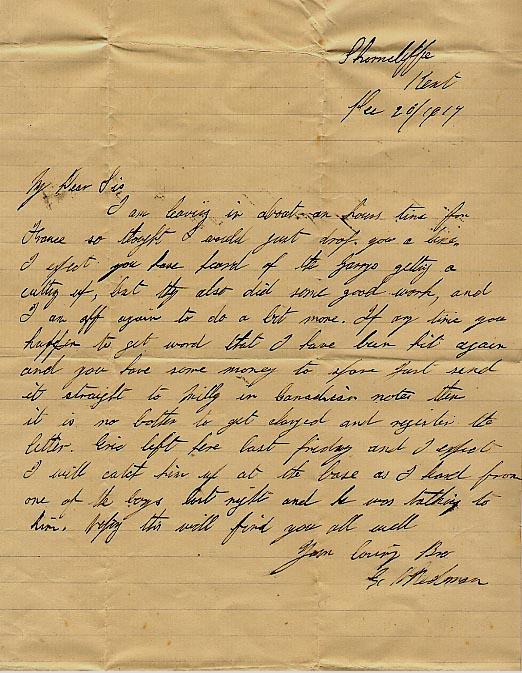 Shorncliffe
Kent
Dec 26/1917
My Dear Sis
I am leaving in about an hours time for
France so thought I would just drop you a line.
I expect you have heard of the getting a
cutting up, but they also did some good work, and
I am off again to do a bit more. If any time you
happen to get word that I have been hit again
and you have some money to spare just send
it straight to Milly in Canadian notes then
it is no bother to get changed and register the
letter. Eric left here last friday and I expect
I will catch him up at the base as I heard from
one of the boys last night and he was talking to
him. Hoping this will find you all well
Your loving Bro
Redman